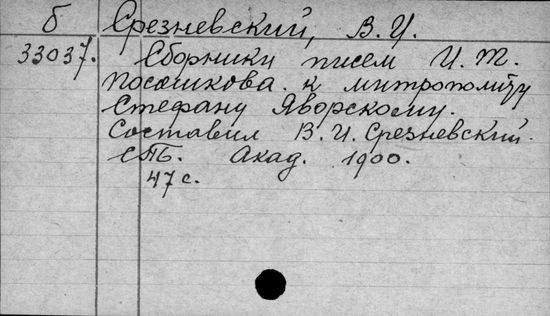 б Срезневский, В.И.
33037. Сборники писем И.Т.
Посошкова к митрополиту
Стефану Яворскому.
Составил В.И. Срезневский.
СПБ. Акад. 1900.
47 с.